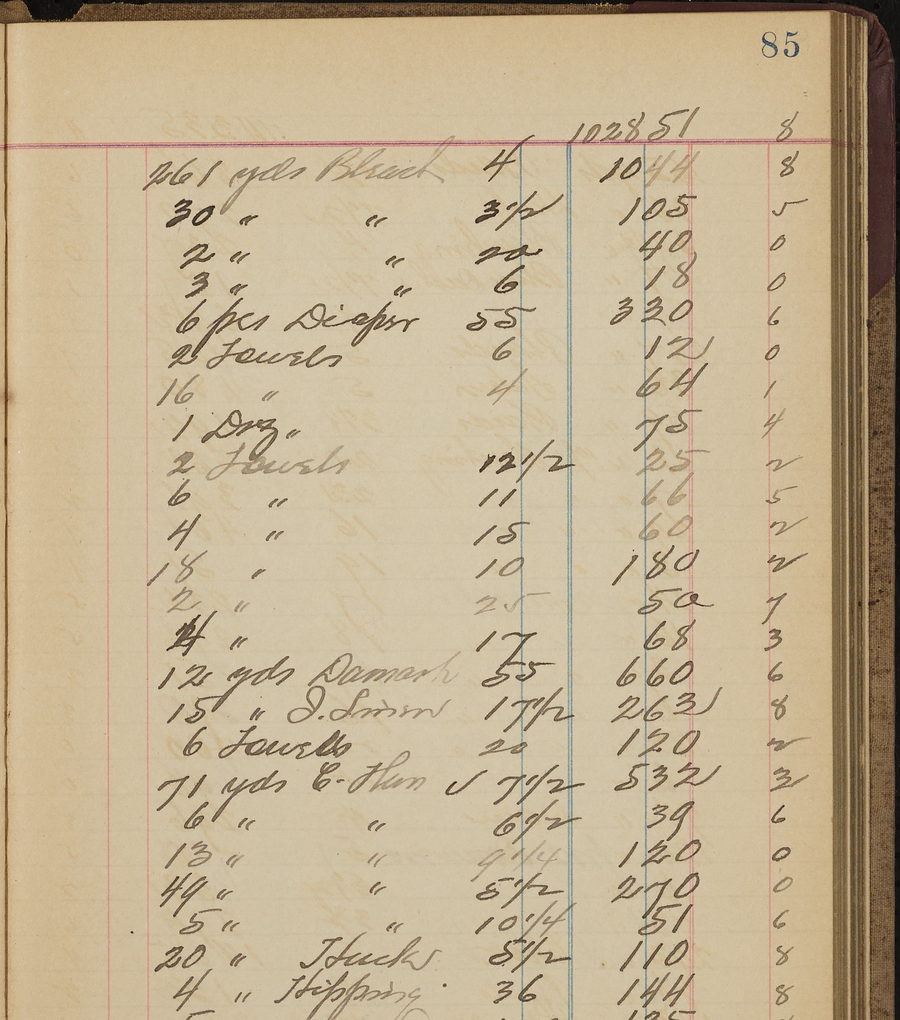 85
102851 8
261 yds Bleach 4 1044 8
30 " " 3 1/2 105 5
2 " " 20 40 0
3 " " 6 18 0
6 pcs Diaper 55 320 6
2 Towels 6 12 0
16 " 4 64 1
1 Doz " 75 4
2 Towels 12 1/2 25 2
6 " 11 66 5
4 " 15 60 2
18 " 10 180 2
2 " 25 50 7
4 " 17 68 3
12 yds Damask 55 660 6
15 " J. Linen 17 1/2 263 8
6 Towels 20 120 2
71 yds C- 7 1/2 532 3
6 " " 6 1/2 39 6
13 " " 9 1/4 120 0
49 " " 5 1/2 270 0
5 " " 10 1/4 51 6
20 " Hucks 5 1/2 110 8
4 " 36 144 8